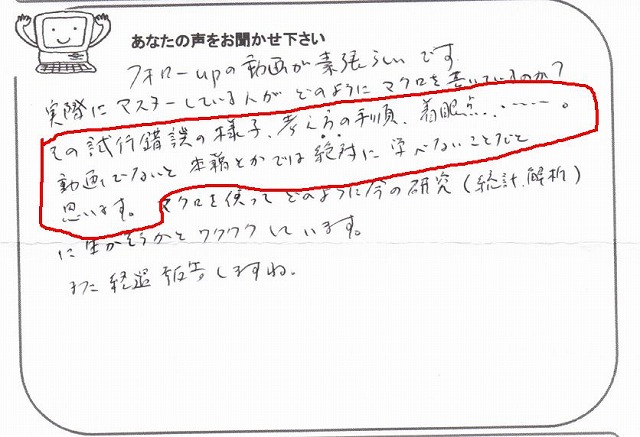 あなたの声をお聞かせ下さい
フォローupの動画が素張らしいです
実際にマスターしている人がどのようにマクロを書いているのか?
その試行錯誤の様子、考え方の手順、着眼点、・・・・。
動画でないと本籍とかでは絶対に学べないことだと
思います。マクロを使ってどのように今の研究(統計、解析)
に生かそうかとワクワクしています。
また経過報告しますね。